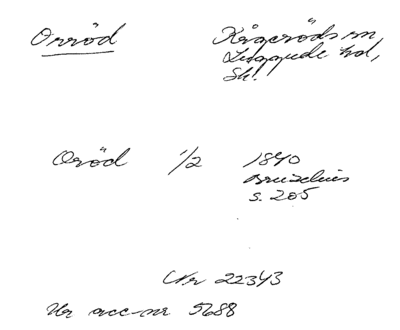 Orröd
Kågeröds sn,
Luggude hd,
Sk!
Oröd 1/2 1840
Bruzelius
s. 205
Nr 22343
Ur acc-nr 5688